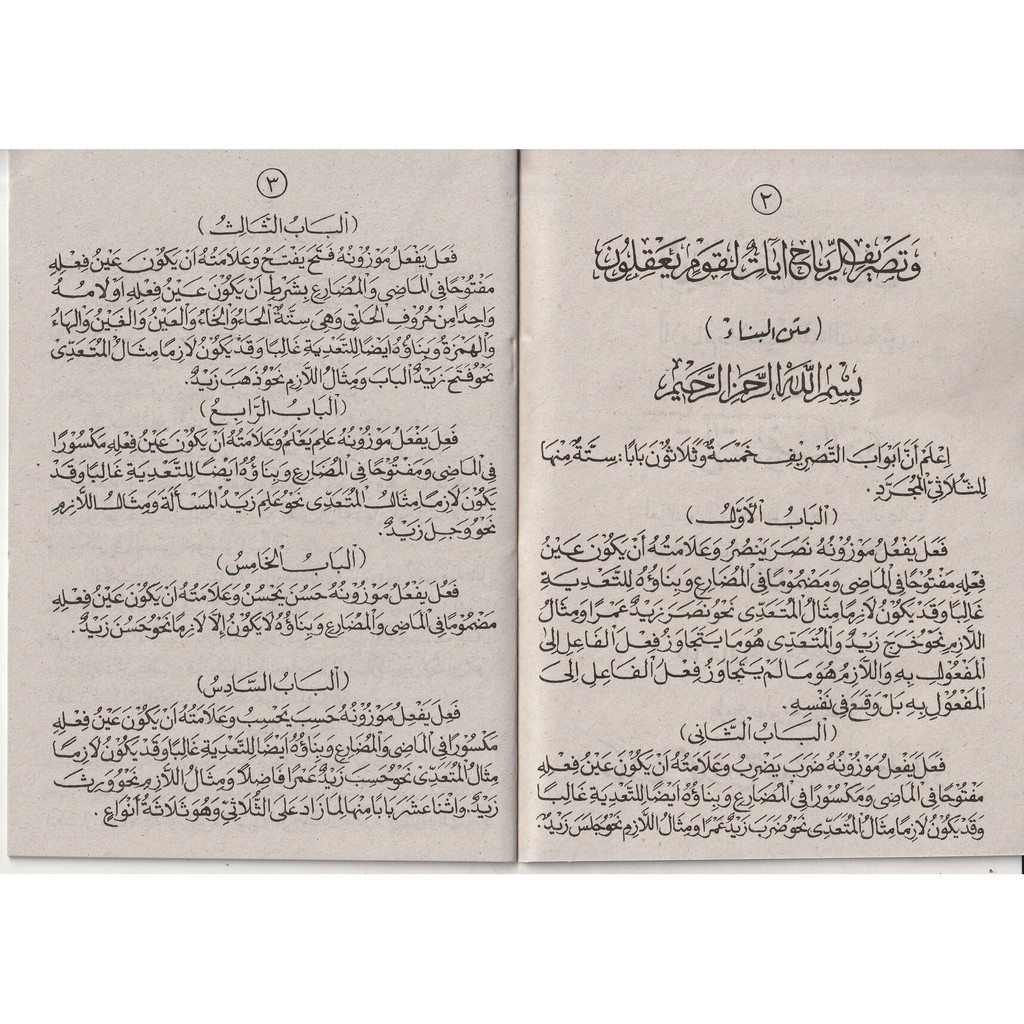 ٢
وَتَصْرِيفِ الرِّيَاحِ اٰيَاتٌ لِقَوْمٍ يَعْقِلُونَ
( متن البناء )
بِسْمِ اللّٰهِ الرَّحْمٰنِ الرَّحِيْمِ
اِعْلَمْ أَنَّ اَبْوَابَ التَّصْرِيْفِ خَمْسَةٌ وَثَلَاثُوْنَ بَابًا : سِتَّةٌ مِنْهَا
لِلثُّلَاثِيِّ الْمُجَرَّدِ .
( اَلْبَابُ الْأَوَّلُ )
فَعَلَ يَفْعُلُ مَوْزُوْنُهُ نَصَرَ يَنْصُرُ وَعَلَامَتُهُ اَنْ يَكُوْنَ عَيْنُ
فِعْلِهِ مَفْتُوْحًا فِى الْمَاضِى وَمَضْمُوْمًا فِى الْمُضَارِعِ وَبِنَاؤُهُ لِلتَّعْدِيَةِ
غَالِبًا وَقَدْ يَكُوْنُ لَازِمًا مِثَالُ الْمُتَعَدِّى نَحْوُ نَصَرَ زَيْدٌ عَمْرًا وَمِثَالُ
اللَّازِمِ نَحْوُ خَرَجَ زَيْدٌ وَالْمُتَعَدِّى هُوَ مَا يَتَجَاوَزُ فِعْلَ الْفَاعِلِ اِلَى
الْمَفْعُوْلِ بِهِ وَاللَّازِمُ هُوَ مَا لَمْ يَتَجَاوَزْ فِعْلُ الْفَاعِلِ اِلَى
الْمَفْعُوْلِ بِهِ بَلْ وَقَعَ فِى نَفْسِهِ .
( اَلْبَابُ الثَّانِى )
فَعَلَ يَفْعِلُ مَوْزُوْنُهُ ضَرَبَ يَضْرِبُ وَعَلَامَتُهُ اَنْ يَكُوْنَ عَيْنُ فِعْلِهِ
مَفْتُوْحًا فِى الْمَاضِى وَمَكْسُوْرًا فِى الْمُضَارِعِ وَبِنَاؤُهُ اَيْضًا لِلتَّعْدِيَةِ غَالِبًا
وَقَدْ يَكُوْنُ لَازِمًا مِثَالُ الْمُتَعَدِّى نَحْوُ ضَرَبَ زَيْدٌ عَمْرًا وَمِثَالُ اللَّازِمِ نَحْوُ جَلَسَ زَيْدٌ .
٣
( اَلْبَابُ الثَّالِثُ )
فَعَلَ يَفْعَلُ مَوْزُوْنُهُ فَتَحَ يَفْتَحُ وَعَلَامَتُهُ اَنْ يَكُوْنَ عَيْنُ فِعْلِهِ
مَفْتُوْحًا فِى الْمَاضِى وَالْمُضَارِعِ بِشَرْطِ اَنْ يَكُوْنَ عَيْنُ فِعْلِهِ اَوْ لَامُهُ
وَاحِدًا مِنْ حُرُوْفِ الْحَلْقِ وَهِىَ سِتَّةٌ الْحَاءُ وَالْخَاءُ وَالْعَيْنُ وَالْغَيْنُ وَالْهَاءُ
وَالْهَمْزَةُ وَبِنَاؤُهُ اَيْضًا لِلتَّعْدِيَةِ غَالِبًا وَقَدْ يَكُوْنُ لَازِمًا مِثَالُ الْمُتَعَدِّى
نَحْوُ فَتَحَ زَيْدٌ الْبَابَ وَمِثَالُ اللَّازِمِ نَحْوُ ذَهَبَ زَيْدٌ .
( اَلْبَابُ الرَّابِعُ )
فَعِلَ يَفْعَلُ مَوْزُوْنُهُ عَلِمَ يَعْلَمُ وَعَلَامَتُهُ اَنْ يَكُوْنَ عَيْنُ فِعْلِهِ مَكْسُوْرًا
فِى الْمَاضِى وَمَفْتُوْحًا فِى الْمُضَارِعِ وَبِنَاؤُهُ اَيْضًا لِلتَّعْدِيَةِ غَالِبًا وَقَدْ
يَكُوْنُ لَازِمًا مِثَالُ الْمُتَعَدِّى نَحْوُ عَلِمَ زَيْدٌ الْمَسْأَلَةَ وَمِثَالُ اللَّازِمِ
نَحْوُ وَجِلَ زَيْدٌ .
( اَلْبَابُ الْخَامِسُ )
فَعُلَ يَفْعُلُ مَوْزُوْنُهُ حَسُنَ يَحْسُنُ وَعَلَامَتُهُ اَنْ يَكُوْنَ عَيْنُ فِعْلِهِ
مَضْمُوْمًا فِى الْمَاضِى وَالْمُضَارِعِ وَبِنَاؤُهُ لَا يَكُوْنُ اِلَّا لَازِمًا نَحْوُ حَسُنَ زَيْدٌ .
( اَلْبَابُ السَّادِسُ )
فَعِلَ يَفْعِلُ مَوْزُوْنُهُ حَسِبَ يَحْسِبُ وَعَلَامَتُهُ اَنْ يَكُوْنَ عَيْنُ فِعْلِهِ
مَكْسُوْرًا فِى الْمَاضِى وَالْمُضَارِعِ وَبِنَاؤُهُ اَيْضًا لِلتَّعْدِيَةِ غَالِبًا وَقَدْ يَكُوْنُ لَازِمًا
مِثَالُ الْمُتَعَدِّى نَحْوُ حَسِبَ زَيْدٌ عَمْرًا فَاضِلًا وَمِثَالُ اللَّازِمِ نَحْوُ وَرِثَ
زَيْدٌ . وَاثْنَا عَشَرَ بَابًا مِنْهَا لِمَا زَادَ عَلَى الثُّلَاثِيِّ وَهُوَ ثَلَاثَةُ اَنْوَاعٍ .